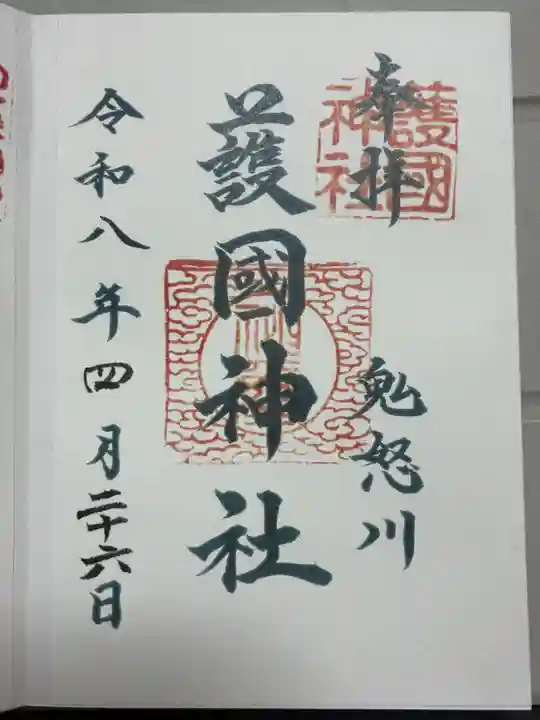 奉拝
護國神社
鬼怒川
護國神社
令和八年四月二十六日